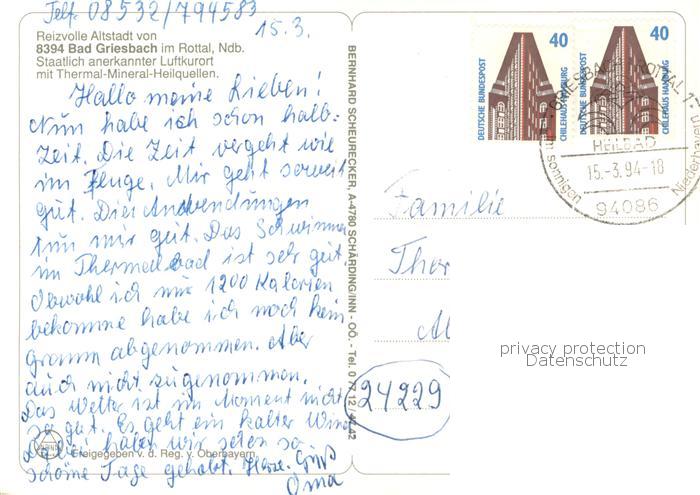 Telf. 08532/794583
15.3.
Reizvolle Altstadt von
8394 Bad Griesbach im Rottal, Ndb.
Staatlich anerkannter Luftkurort
mit Thermal-Mineral-Heilquellen.
Hallo meine Lieben!
Nun habe ich schon halb-
Zeit. Die Zeit vergeht wie
im Fluge. Mir geht soweit
gut. Die Anwendungen
tun mir gut. Das Schwimmen
im Thermalbad ist sehr gut
Obwohl ich nur 1200 Kalorien
bekomme habe ich noch kein
gramm abgenommen. Aber
auch nicht zugenommen.
Das Wetter ist im Moment nicht
so gut. Es geht ein kalter Wind
haben wir schon so
schöne Tage gehabt. Herz. Gruß
Oma
Freigegeben v. d. Reg. v. Oberbayern
BERNHARD SCHEURECKER, A-4780 SCHÄRDING/INN - OÖ. - Tel. 0 77 12 /
40
DEUTSCHE BUNDESPOST
CHILEHAUS HAMBURG
40
DEUTSCHE BUNDESPOST
CHILEHAUS HAMBURG
GRIESBACH ROTTAL 1
HEILBAD
15.-3.94-18
94086
im sonnigen
Familie
Thor
24229
privacy protection
Datenschutz